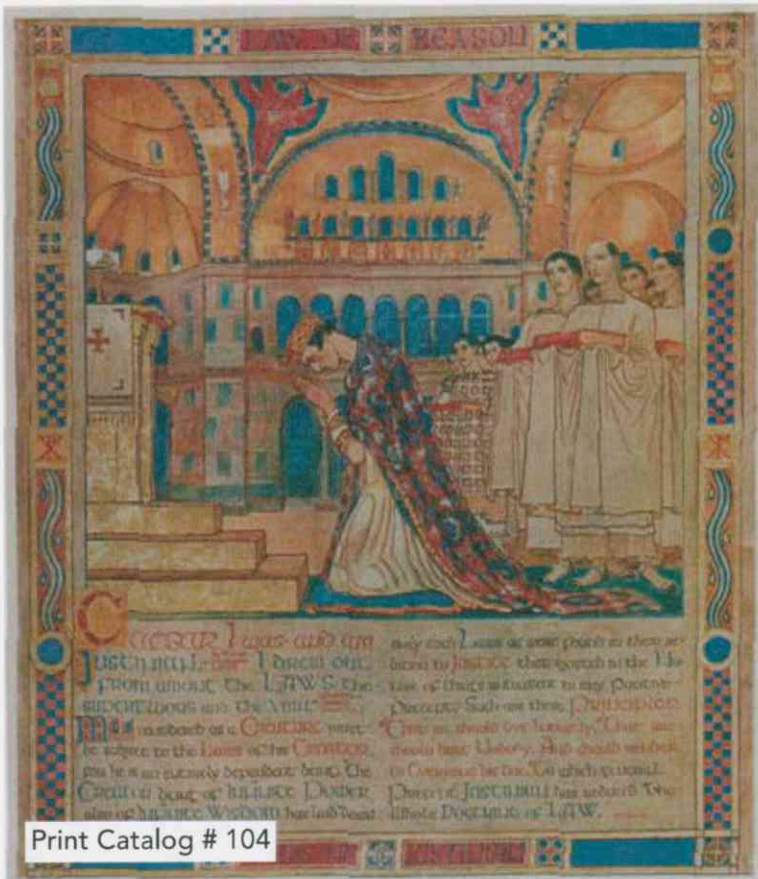 LAW OF REASON
CAESAR I was and am
JUSTINIAN I drew out
FROM AMONG THE LAWS the
SUPERFLUOUS and the VAIN
MAN considered as a CREATURE must
be subject to the Laws of his CREATOR
for he is an entirely dependent being. The
CREATOR being of INFINITE POWER
also of INFINITE WISDOM has laid down
only such Laws as were in those re-
lations to JUSTICE that existed in the Na-
ture of things to any Positive
Precept. Such are these PRINCIPLES
"That we should live honestly," "That we
should hurt Nobody, And should render
to Everyone his due," To which
Precepts JUSTINIAN has reduced the
Whole DOCTRINE of LAW.
JUSTINIAN
Print Catalog # 104